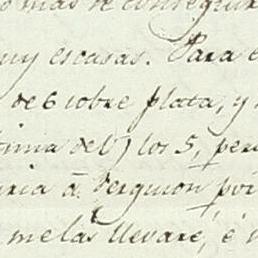 o mas de conseguir
uy escasas. Para e
de 6 sobre plata, y
tima del) los 5, per
ria á Derguion por
me las llevaré, é i